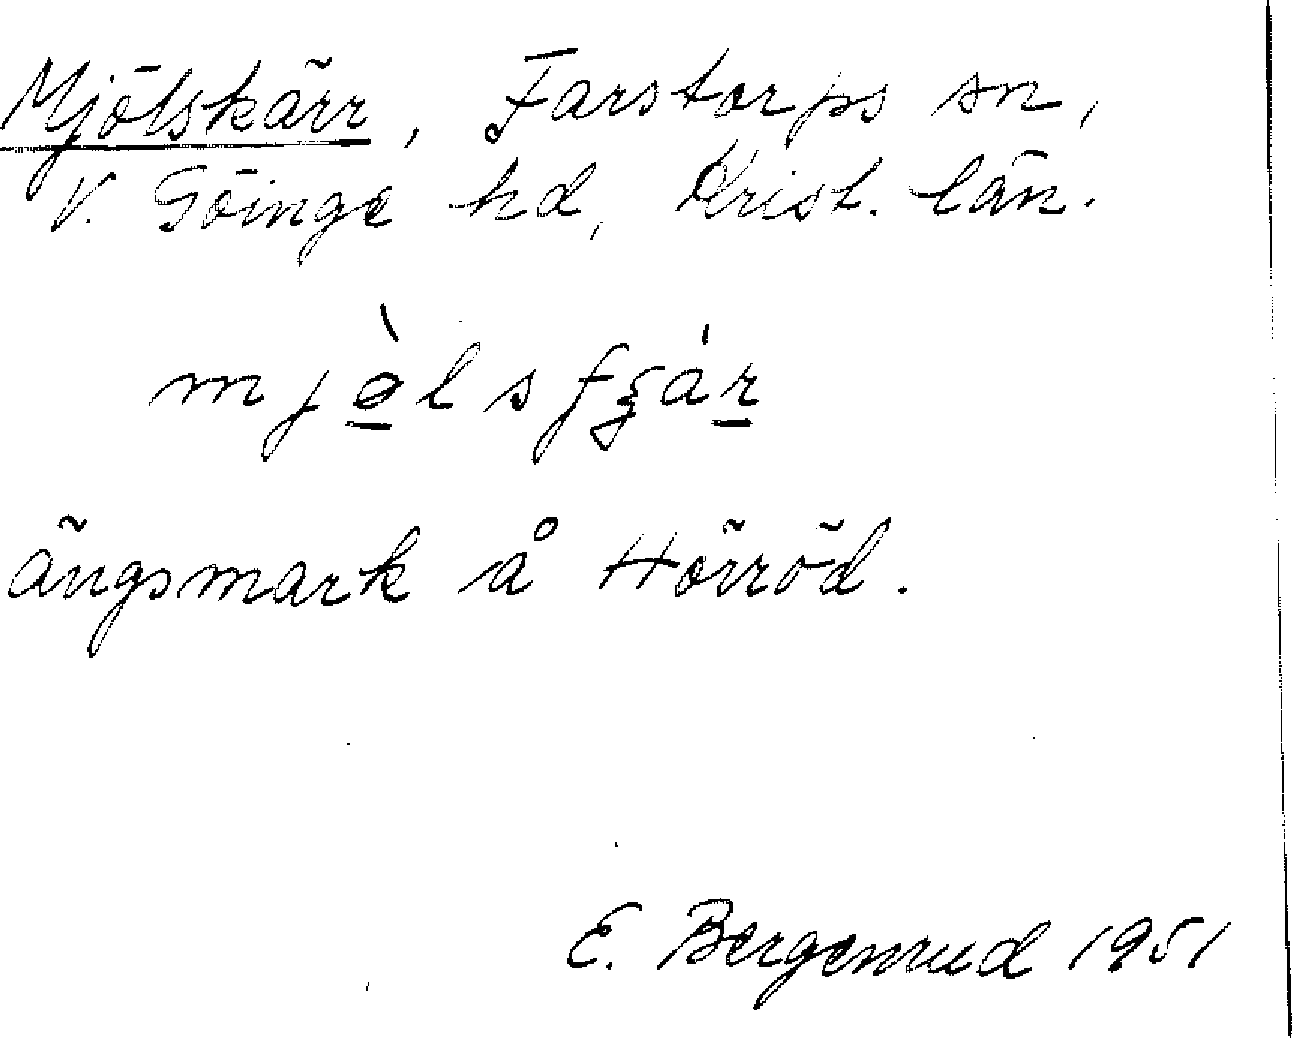 Mjölskärr, Farstorps sn,
V. Göinge hd, Krist. län.
ängsmark å Hörröd.
E. Bergenrud 1951